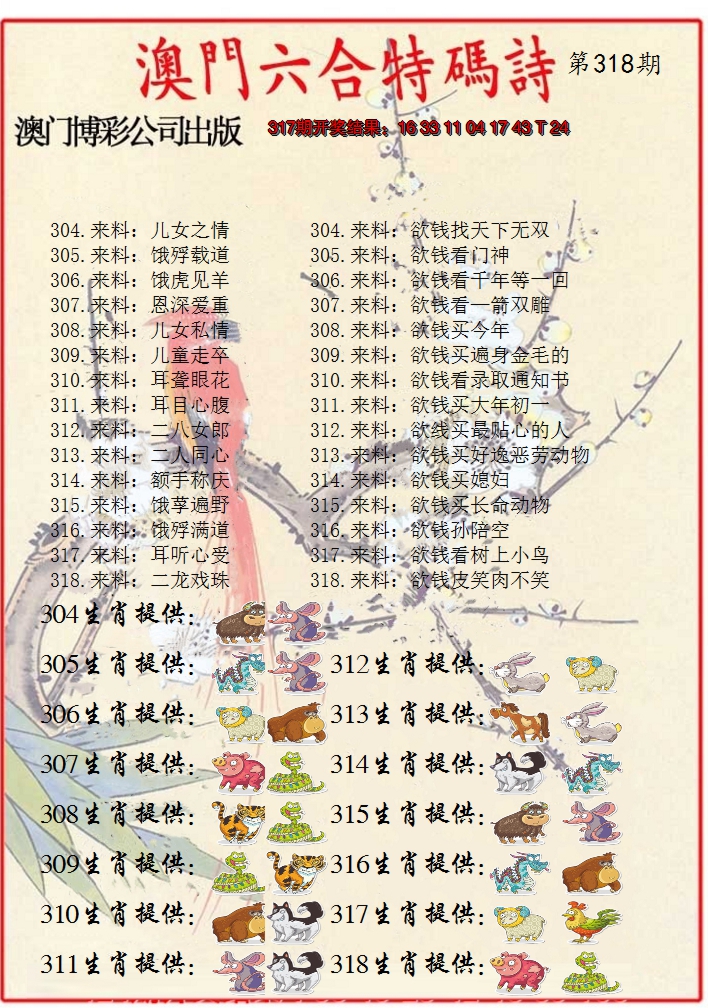 澳門六合特碼詩 第318期
澳门博彩公司出版 317期开奖结果：16 33 11 04 17 43 T 24
304.来料：儿女之情 304.来料：欲钱找天下无双
305.来料：饿殍载道 305.来料：欲钱看门神
306.来料：饿虎见羊 306.来料：欲钱看千年等一回
307.来料：恩深爱重 307.来料：欲钱看一箭双雕
308.来料：儿女私情 308.来料：欲钱买今年
309.来料：儿童走卒 309.来料：欲钱买遍身金毛的
310.来料：耳聋眼花 310.来料：欲钱看录取通知书
311.来料：耳目心腹 311.来料：欲钱买大年初一
312.来料：二八女郎 312.来料：欲线买最贴心的人
313.来料：二人同心 313.来料：欲钱买好逸恶劳动物
314.来料：额手称庆 314.来料：欲钱买媳妇
315.来料：饿莩遍野 315.来料：欲钱买长命动物
316.来料：饿殍满道 316.来料：欲钱孙陪空
317.来料：耳听心受 317.来料：欲钱看树上小鸟
318.来料：二龙戏珠 318.来料：欲钱皮笑肉不笑
304生肖提供：
305生肖提供： 312生肖提供：
306生肖提供： 313生肖提供：
307生肖提供： 314生肖提供：
308生肖提供： 315生肖提供：
309生肖提供： 316生肖提供：
310生肖提供： 317生肖提供：
311生肖提供： 318生肖提供：